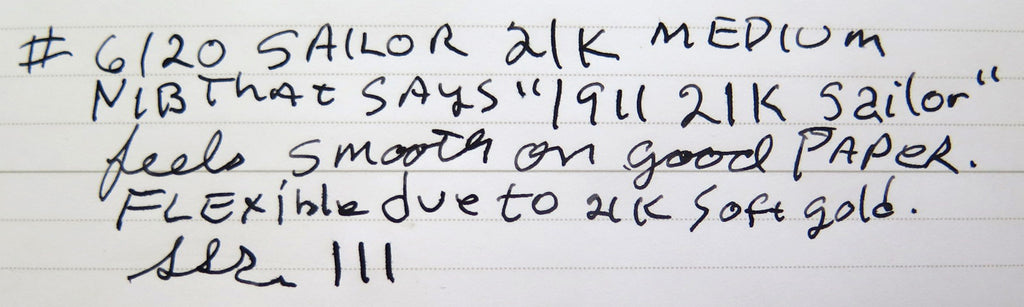 # 6120 SAILOR 21K MEDIUM
NIB THAt SAYS "1911 21K Sailor"
feels smooth on good PAPER.
FLEXible due to 21K Soft gold.
111